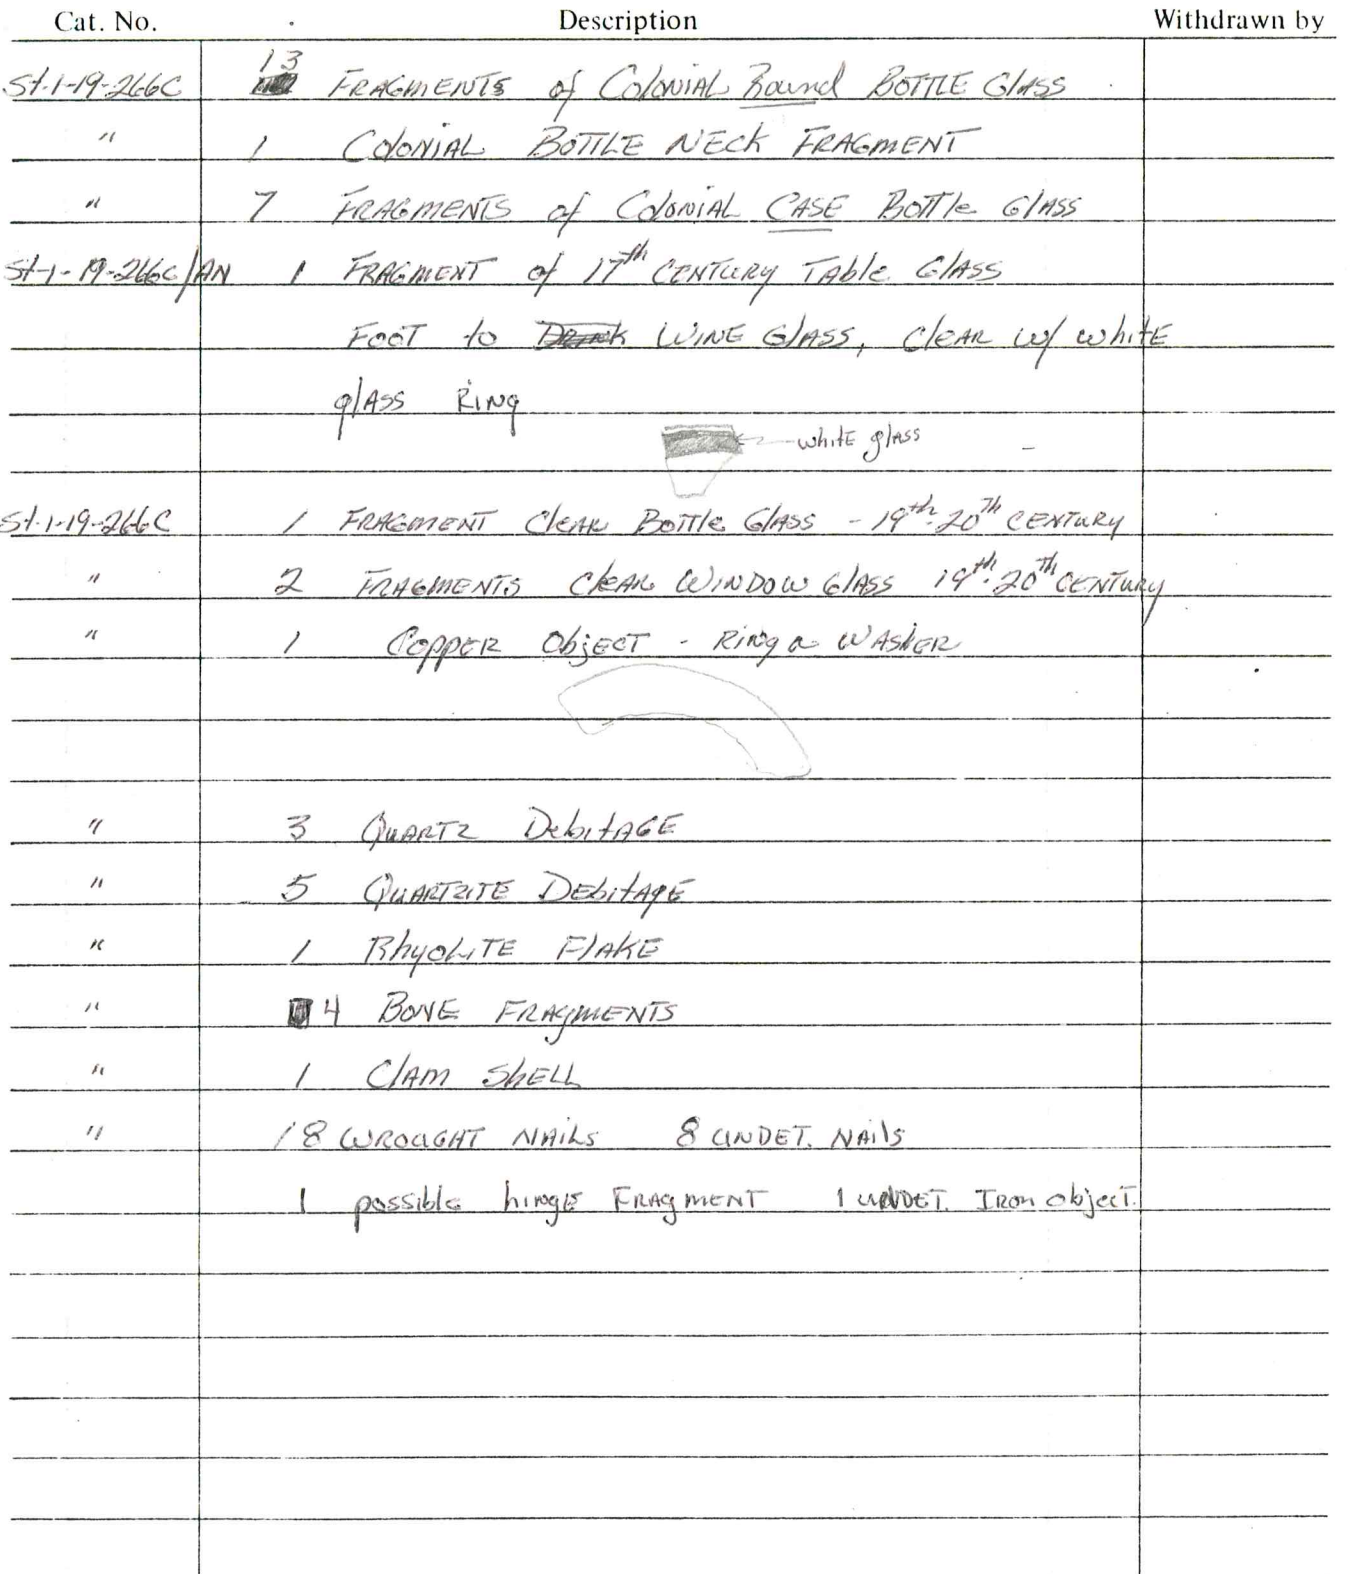 Cat. No. Description Withdrawn by
13
St.1-19-266C FRAGMENTS of Colonial Round BOTTLE Glass
" 1 Colonial BOTTLE NECK FRAGMENT
" 7 FRAGMENTS of Colonial CASE Bottle Glass
St-1-19-266C/AN 1 FRAGMENT of 17th CENTURY Table Glass
FOOT to Drink WINE Glass, Clear w/ white
glass Ring
white glass
St.1-19-266C 1 FRAGMENT Clear Bottle Glass - 19th-20th CENTURY
" 2 FRAGMENTS Clear WINDOW Glass 19th-20th CENTURY
" 1 Copper Object - Ring or WASHER
" 3 Quartz Debitage
" 5 Quartzite Debitage
" 1 Rhyolite Flake
" 4 BONE FRAGMENTS
" 1 Clam Shell
" 18 WROUGHT NAILS 8 UNDET. NAILS
1 possible hinge FRAGMENT 1 UNDET. Iron object.